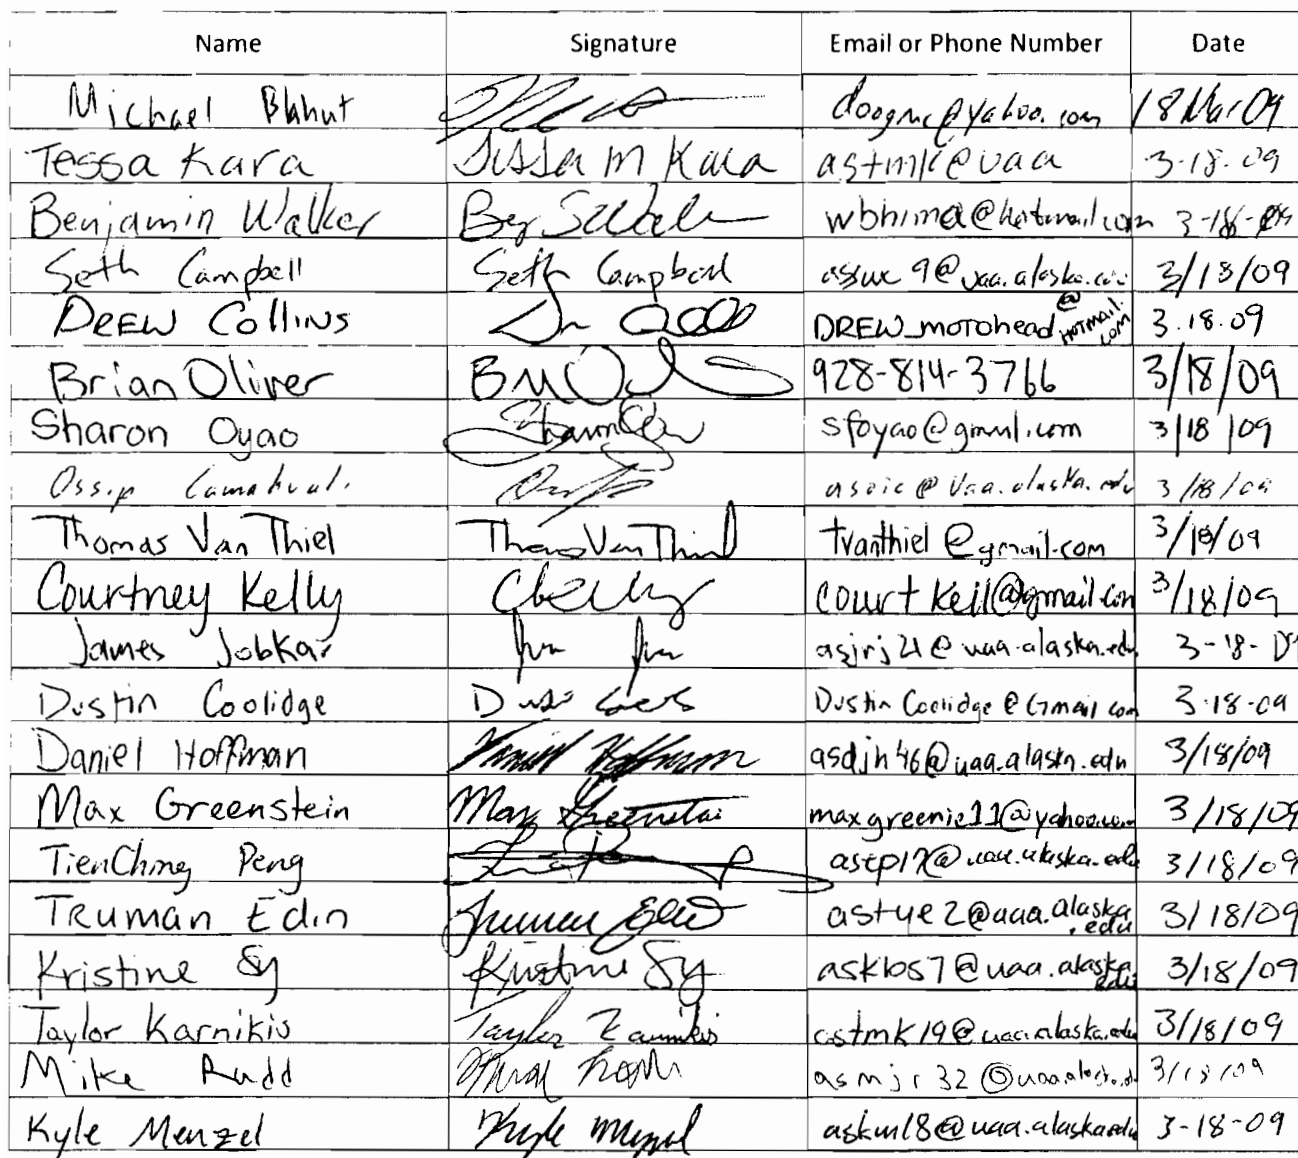 Name Signature Email or Phone Number Date
Michael Blahut doogmc@yahoo.com 18 Mar 09
Tessa Kara Tessa M Kara astmk@uaa 3-18-09
Benjamin Walker wbhima@hotmail.com 3-18-09
Seth Campbell Seth Campbell @uaa.alaska. 3/18/09
DREW Collins DREW_motohead@HOTMAIL.COM 3.18.09
Brian Oliver 928-814-3766 3/18/09
Sharon Oyao sfoyao@gmail.com 3/18/09
Ossip @uaa.alaska.edu 3/18/09
Thomas Van Thiel Thomas Van Thiel tvanthiel@gmail.com 3/18/09
Courtney Kelly courtkell@gmail.com 3/18/09
James Jobkar asjrj21@uaa.alaska.edu 3-18-09
Dustin Coolidge DustinCoolidge@Gmail.com 3-18-09
Daniel Hoffman Daniel Hoffman asdjh46@uaa.alaska.edu 3/18/09
Max Greenstein Max Greenstein maxgreenie11@yahoo.com 3/18/09
TienChing Peng astp17@uaa.alaska.edu 3/18/09
TRUMAN Edin Truman Edin astye2@uaa.alaska.edu 3/18/09
Kristine Sy Kristine Sy askbs7@uaa.alaska.edu 3/18/09
Taylor Karnikis Taylor Karnikis astmk19@uaa.alaska.edu 3/18/09
Mike Rudd asmjr32@uaa.alaska.edu 3/18/09
Kyle Menzel Kyle Menzel askm18@uaa.alaska.edu 3-18-09